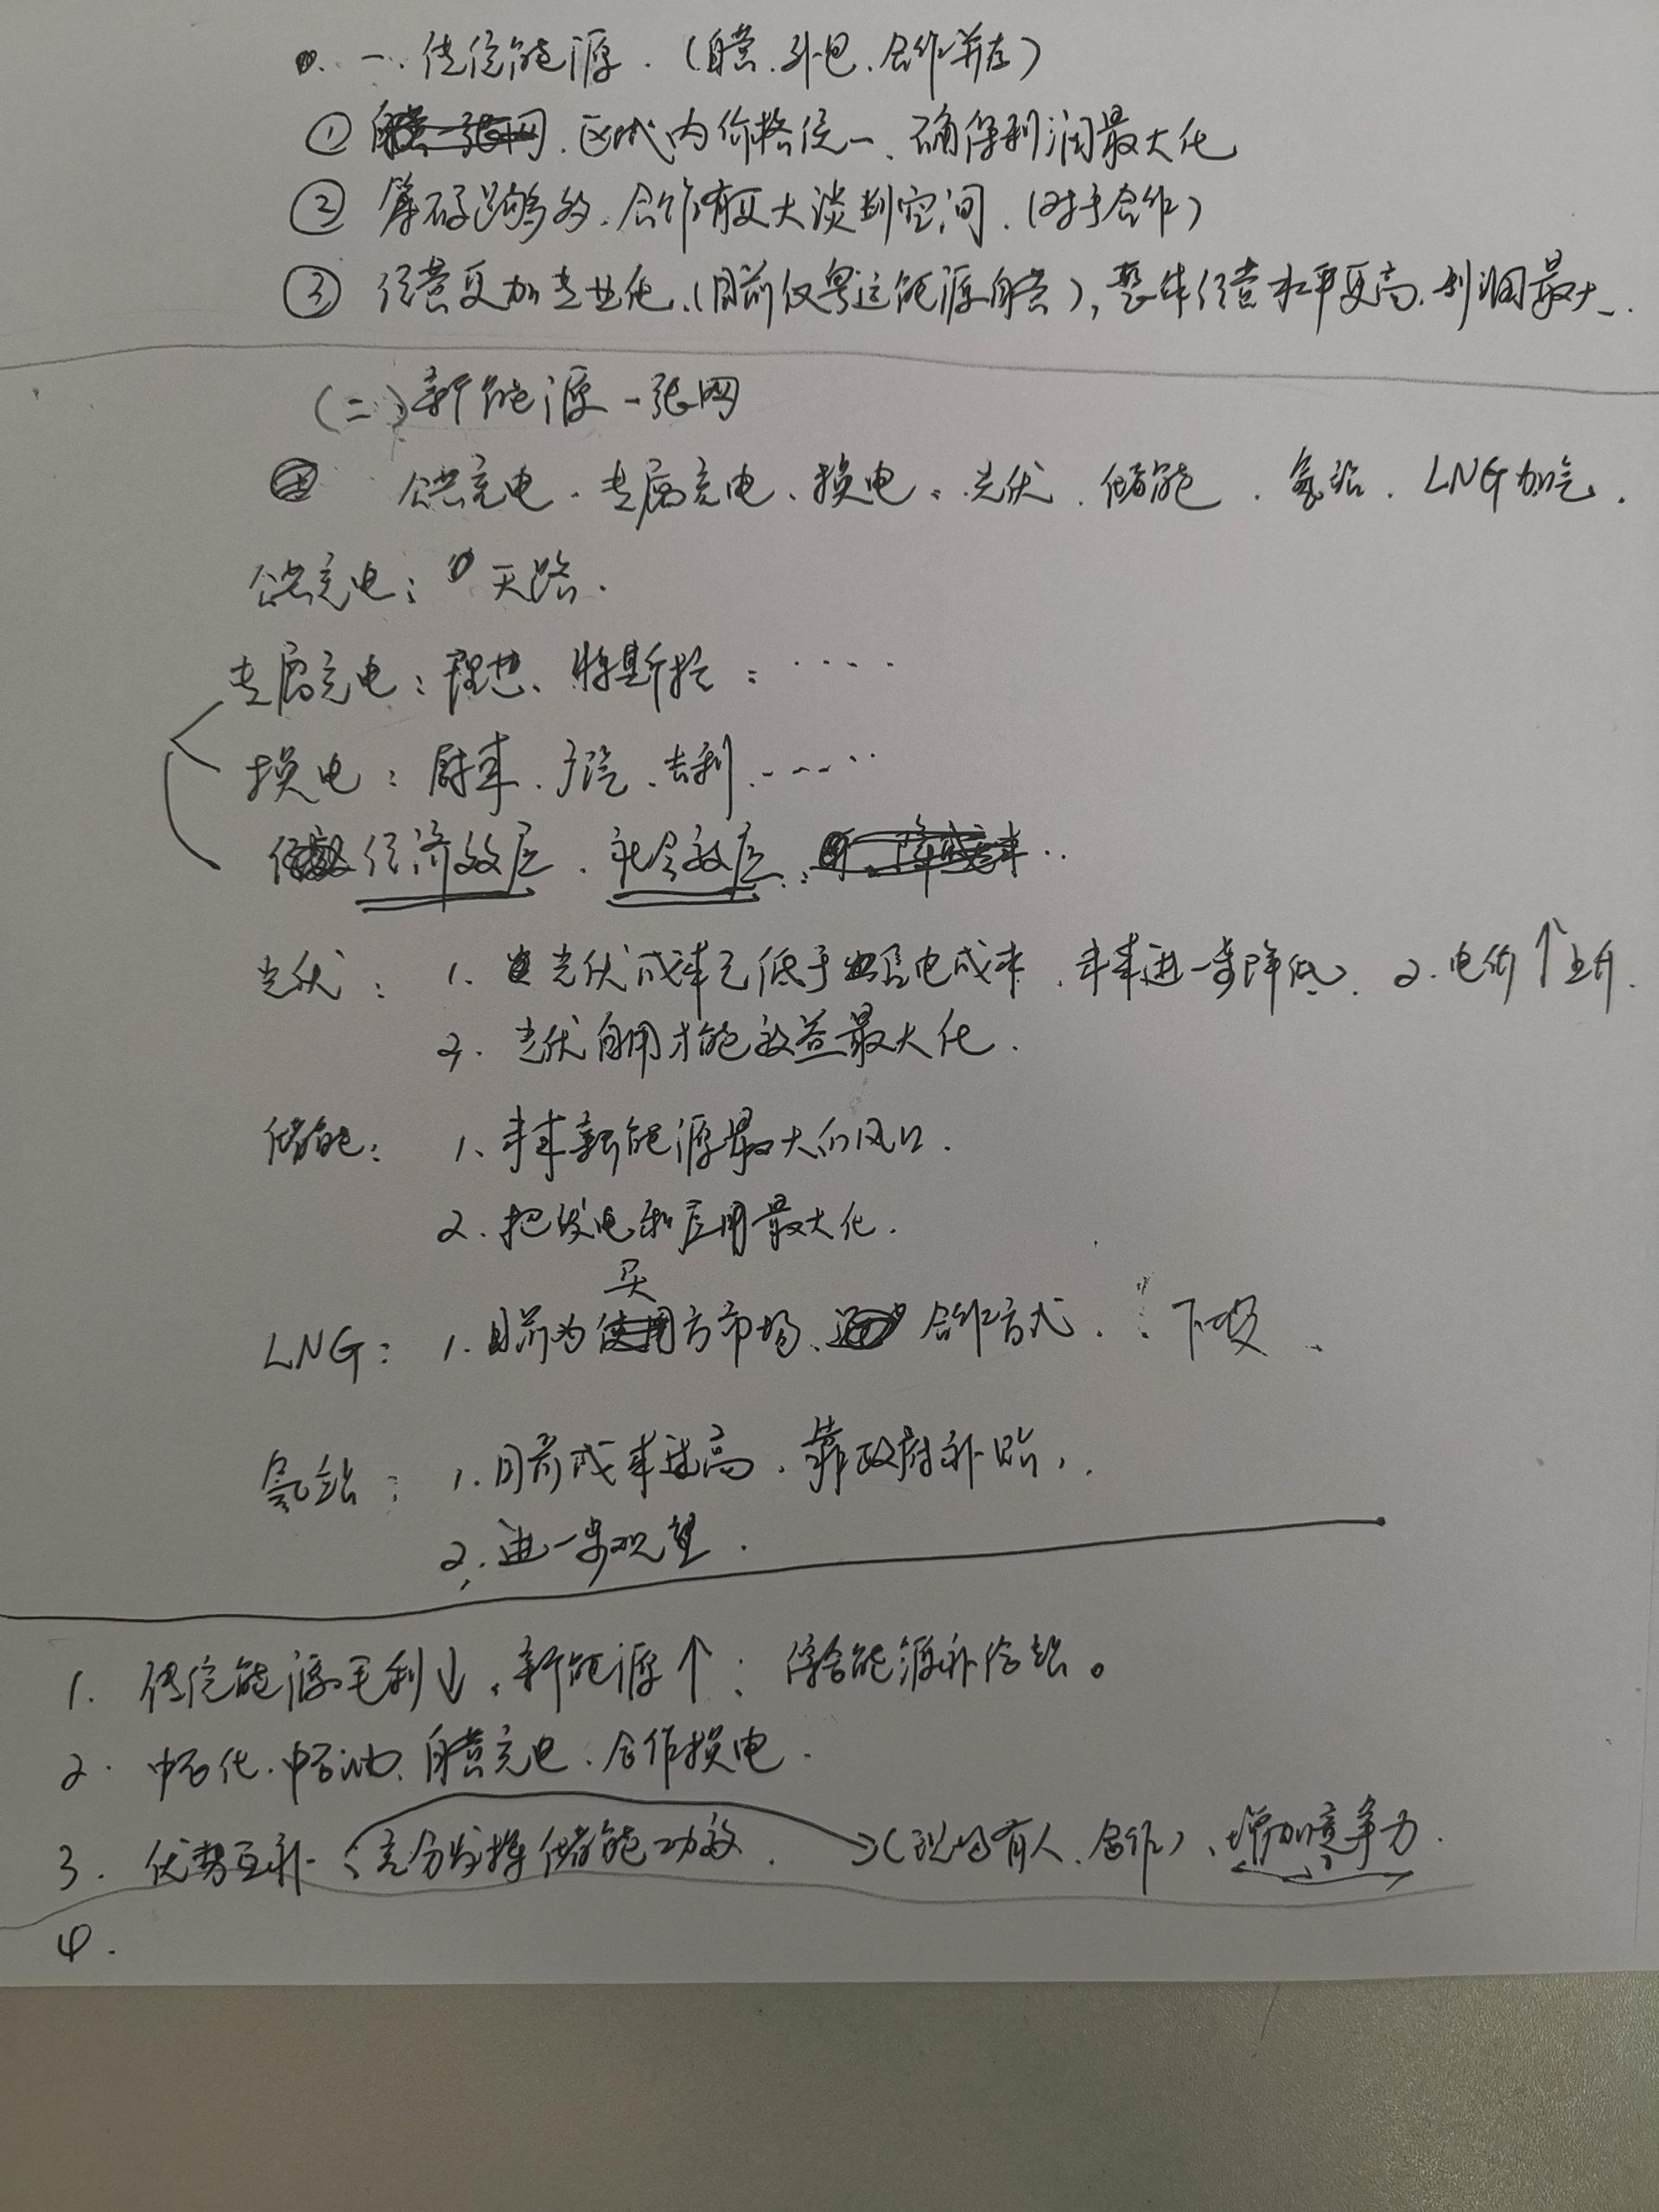 一. 传统能源. (自营、外包、合作并存)
① 自营一张网. 区域内价格统一、确保利润最大化
② 筹码足够多. 合作有更大谈判空间. (对于合作)
③ 经营更加专业化、(目前仅粤运能源自营), 整体经营水平更高. 利润最大.
(二) 新能源一张网
公共充电、专属充电、换电、光伏、储能、氢站、LNG加气.
公共充电: 天路.
专属充电: 理想、特斯拉: ....
换电: 蔚来、广汽、吉利.....
经济效应、社会效应、降成本..
光伏: 1. 光伏成本已低于火电成本、未来进一步降低. 2. 电价↑上升.
2. 光伏自用才能效益最大化.
储能: 1、未来新能源最大的风口.
2. 把发电和应用最大化.
LNG: 1. 目前为买方市场、合作方式. 下投.
氢站: 1. 目前成本过高、靠政府补贴,.
2. 进一步观望.
1. 传统能源毛利↓、新能源↑: 综合能源补给站。
2. 中石化、中石油、自营充电、合作换电.
3. 优势互补. (充分发挥储能功效. →(现场有人、合作)、增加竞争力.
4.